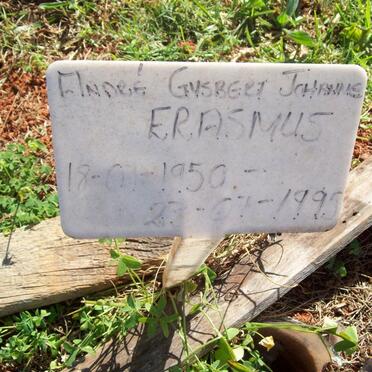 André Gysbert Johannes
ERASMUS
18-01-1950 -